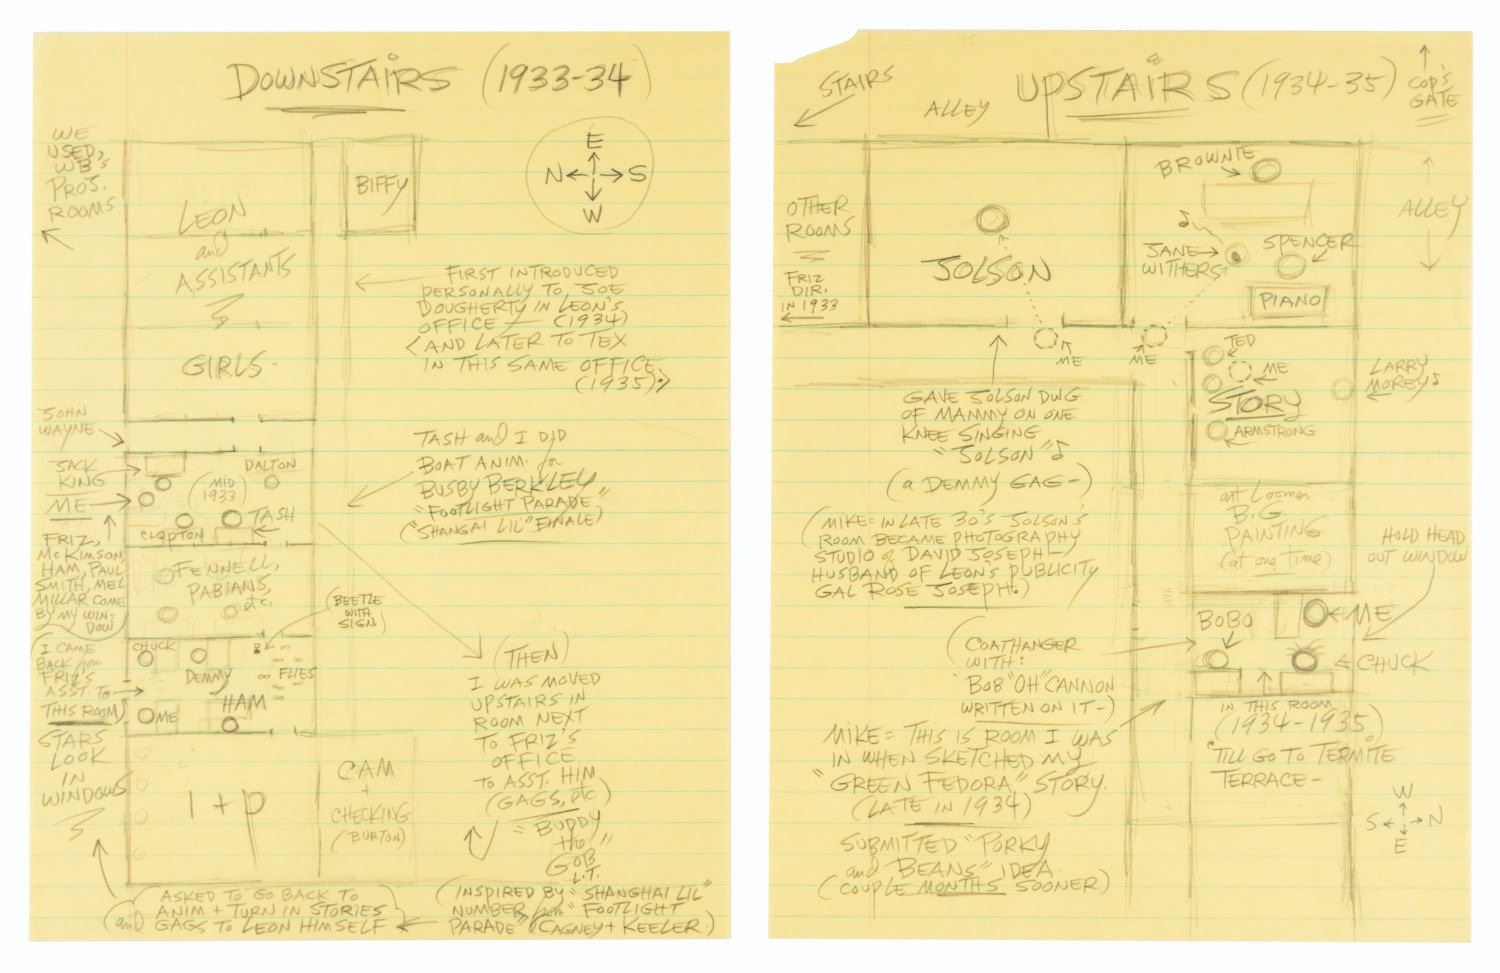 DOWNSTAIRS (1933-34)
WE
USED,
WB's
PROJ.
ROOMS
LEON
and
ASSISTANTS
GIRLS
BIFFY
E
N S
W
FIRST INTRODUCED
PERSONALLY TO JOE
DOUGHERTY IN LEON'S
OFFICE — (1934)
AND LATER TO TEX
IN THIS SAME OFFICE
(1935)
JOHN
WAYNE
JACK
KING
ME
(MID
1933)
DALTON
TASH
CLAPTON
TASH and I DID
BOAT ANIM. for
BUSBY BERKLEY
"FOOTLIGHT PARADE"
("SHANGAI LIL" FINALE)
FRIZ,
McKIMSON,
HAM, PAUL
SMITH, MEL
MILLAR COME
BY MY WIN-
DOW
FENNELL,
PABIANS,
etc.
BEETLE
WITH
SIGN
(I CAME
BACK from
FRIZ'S
ASST. TO
THIS ROOM)
CHUCK
DEMMY
FLIES
ME
HAM
STARS
LOOK
IN
WINDOWS
I + P
CAM
+
CHECKING
(BURTON)
(THEN)
I WAS MOVED
UPSTAIRS IN
ROOM NEXT
TO FRIZ'S
OFFICE
TO ASST. HIM
(GAGS, etc)
"BUDDY
the
GOB"
L.T.
(INSPIRED BY "SHANGHAI LIL"
NUMBER from "FOOTLIGHT
PARADE" CAGNEY + KEELER.)
ASKED TO GO BACK TO
ANIM + TURN IN STORIES
(and GAGS TO LEON HIMSELF
UPSTAIRS (1934-35)
STAIRS
ALLEY
COP'S
GATE
BROWNIE
ALLEY
OTHER
ROOMS
FRIZ
DIR.
IN 1933
JOLSON
JANE
WITHERS
SPENCER
PIANO
ME
ME
TED
ME
STORY
ARMSTRONG
LARRY
MOREY
GAVE JOLSON DWG
OF MAMMY ON ONE
KNEE SINGING
"JOLSON"
(a DEMMY GAG-)
(MIKE= IN LATE 30'S JOLSON'S
ROOM BECAME PHOTOGRAPHY
STUDIO of DAVID JOSEPH—
HUSBAND OF LEON'S PUBLICITY
GAL ROSE JOSEPH.)
art Loomer
B.G.
PAINTING
(at one time)
HOLD HEAD
OUT WINDOW
BOBO
ME
CHUCK
(COATHANGER
WITH:
"BOB "OH" CANNON
WRITTEN ON IT-)
IN THIS ROOM
(1934-1935)
'TILL GO TO TERMITE
TERRACE-
MIKE= THIS IS ROOM I WAS
IN WHEN SKETCHED MY
"GREEN FEDORA" STORY.
(LATE IN 1934)
SUBMITTED "PORKY
and BEANS" IDEA
(COUPLE MONTHS SOONER)
W
S N
E